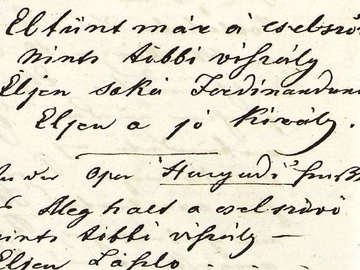 Eltünt már a cselszö
nints többi viszály
Éljen soká Ferdinandun
Eljen a jó Király.
der Oper "Hunyadi"
Meg halt a cselszövö
nints többi viszály —
Eljen László